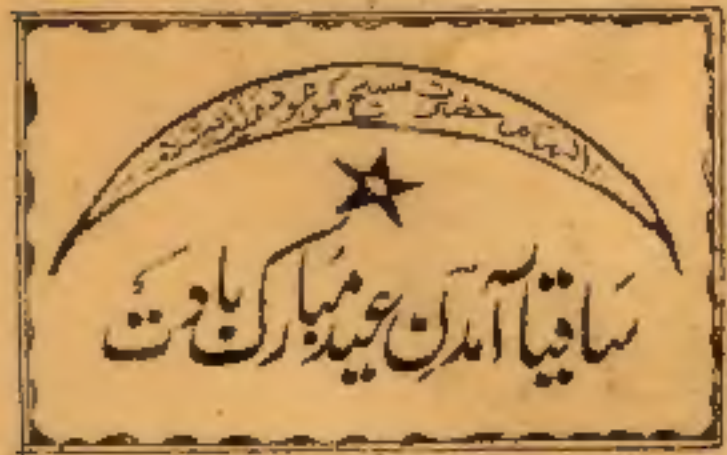 الہام حضرت مسیح موعود علیہ السلام
سَاقِیَا آمدَنِ عید مُبَارک بادَتْ